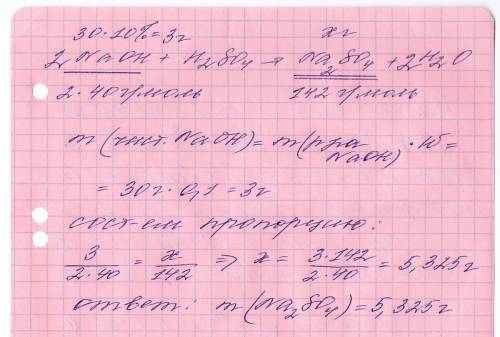 30·10%=3г xг
2NaOH + H₂SO₄ → Na₂SO₄ + 2H₂O
2·40г/моль 142 г/моль
m (чист. NaOH) = m(р-ра NaOH) · w =
= 30г · 0,1 = 3г
сост-ем пропорцию:
3/2·40 = x/142 ⇒ x = 3·142/2·40 = 5,325г
ответ: m (Na₂SO₄) = 5,325г